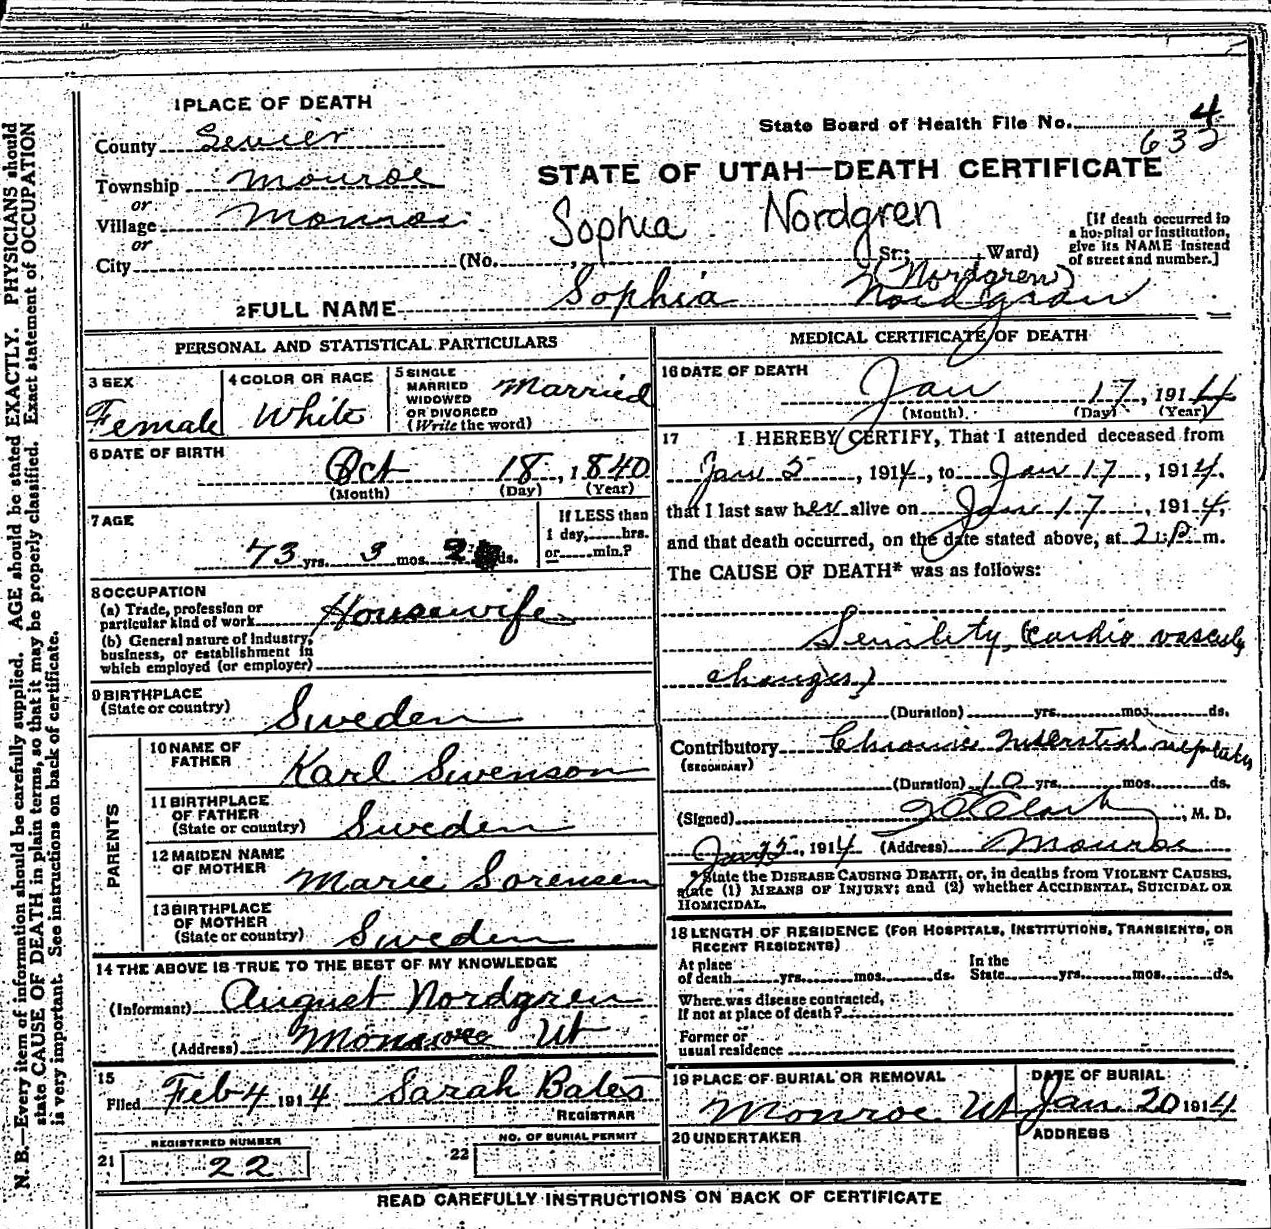 1 PLACE OF DEATH
County Sevier
Township Monroe
or
Village Monroe
or
City (No. , St.; Ward)
State Board of Health File No. 4
632
STATE OF UTAH—DEATH CERTIFICATE
Sophia Nordgren
[If death occurred in
a hospital or institution,
give its NAME instead
of street and number.]
(Nordgren)
2 FULL NAME Sophia Nordgran
PERSONAL AND STATISTICAL PARTICULARS
3 SEX
Female
4 COLOR OR RACE
White
5 SINGLE
MARRIED
WIDOWED
OR DIVORCED
(Write the word)
Married
6 DATE OF BIRTH
Oct 18, 1840
(Month) (Day) (Year)
7 AGE
73 yrs. 3 mos. 2 ds.
If LESS than
1 day, hrs.
or min.?
8 OCCUPATION
(a) Trade, profession or
particular kind of work Housewife
(b) General nature of Industry,
business, or establishment in
which employed (or employer)
9 BIRTHPLACE
(State or country)
Sweden
PARENTS
10 NAME OF
FATHER
Karl Swenson
11 BIRTHPLACE
OF FATHER
(State or country) Sweden
12 MAIDEN NAME
OF MOTHER
Marie Sorensen
13 BIRTHPLACE
OF MOTHER
(State or country) Sweden
14 THE ABOVE IS TRUE TO THE BEST OF MY KNOWLEDGE
(Informant) August Nordgren
(Address) Monroe Ut
15
Filed Feb 4 1914 Sarah Bates
REGISTRAR
REGISTERED NUMBER
21 22
NO. OF BURIAL PERMIT
22
MEDICAL CERTIFICATE OF DEATH
16 DATE OF DEATH
Jan 17, 1914
(Month) (Day) (Year)
17 I HEREBY CERTIFY, That I attended deceased from
Jan 5, 1914, to Jan 17, 1914.
that I last saw her alive on Jan 17, 1914,
and that death occurred, on the date stated above, at 2 P. m.
The CAUSE OF DEATH* was as follows:
Senility, (Cardio vascular
changes)
(Duration) yrs. mos. ds.
Contributory Chronic Interstitial
(SECONDARY)
(Duration) 10 yrs. mos. ds.
(Signed) Clark, M. D.
Jan 25, 1914 (Address) Monroe
*State the DISEASE CAUSING DEATH, or, in deaths from VIOLENT CAUSES,
state (1) MEANS OF INJURY; and (2) whether ACCIDENTAL, SUICIDAL OR
HOMICIDAL.
18 LENGTH OF RESIDENCE (FOR HOSPITALS, INSTITUTIONS, TRANSIENTS, OR
RECENT RESIDENTS)
At place
of death yrs. mos. ds.
In the
State yrs. mos. ds.
Where was disease contracted,
If not at place of death?
Former or
usual residence
19 PLACE OF BURIAL OR REMOVAL
Monroe Ut
DATE OF BURIAL
Jan 20 1914
20 UNDERTAKER
ADDRESS
READ CAREFULLY INSTRUCTIONS ON BACK OF CERTIFICATE
N. B.—Every item of information should be carefully supplied. AGE should be stated EXACTLY. PHYSICIANS should
state CAUSE OF DEATH in plain terms, so that it may be properly classified. Exact statement of OCCUPATION
is very important. See instructions on back of certificate.